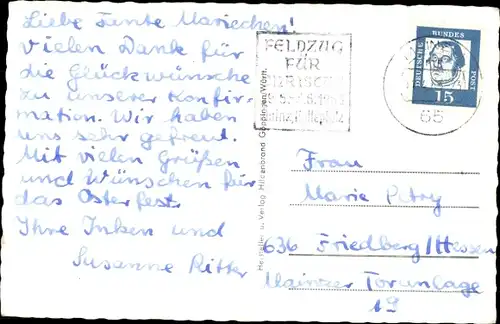 Liebe Tante Mariechen!
Vielen Dank für
die Glückwünsche
zu unserer Konfir-
mation. Wir haben
uns sehr gefreut.
Mit vielen Grüßen
und Wünschen für
das Osterfest
Ihre Inken und
Susanne Ritter
FELDZUG
FÜR
DEUTSCHE BUNDESPOST
15
65
Hersteller u. Verlag Hildenbrand Göppingen/Württ.
Frau
Marie Petry
636 Friedberg/Hessen
Mainzer Toranlage
19